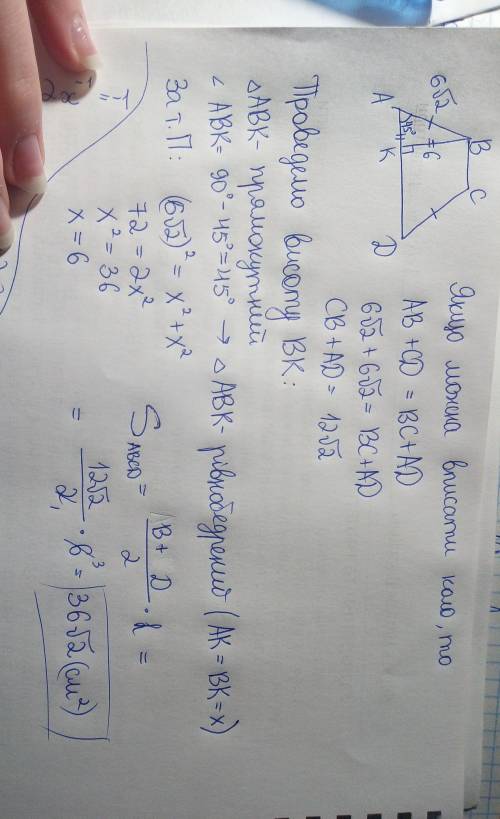 Якщо можна вписати коло, то
AB + CD = BC + AD
6√2 + 6√2 = BC + AD
CB + AD = 12√2
B C
6√2 = 6
A 45° K D
Проведемо висоту BK:
△ABK - прямокутний
∠ABK = 90° - 45° = 45° → △ABK - рівнобедрений (AK = BK = x)
За т. П: (6√2)² = x² + x²
72 = 2x²
x² = 36
x = 6
S ABCD = B + D / 2 · h =
= 12√2 / 2 · 6 ³ = 36√2 (см²)